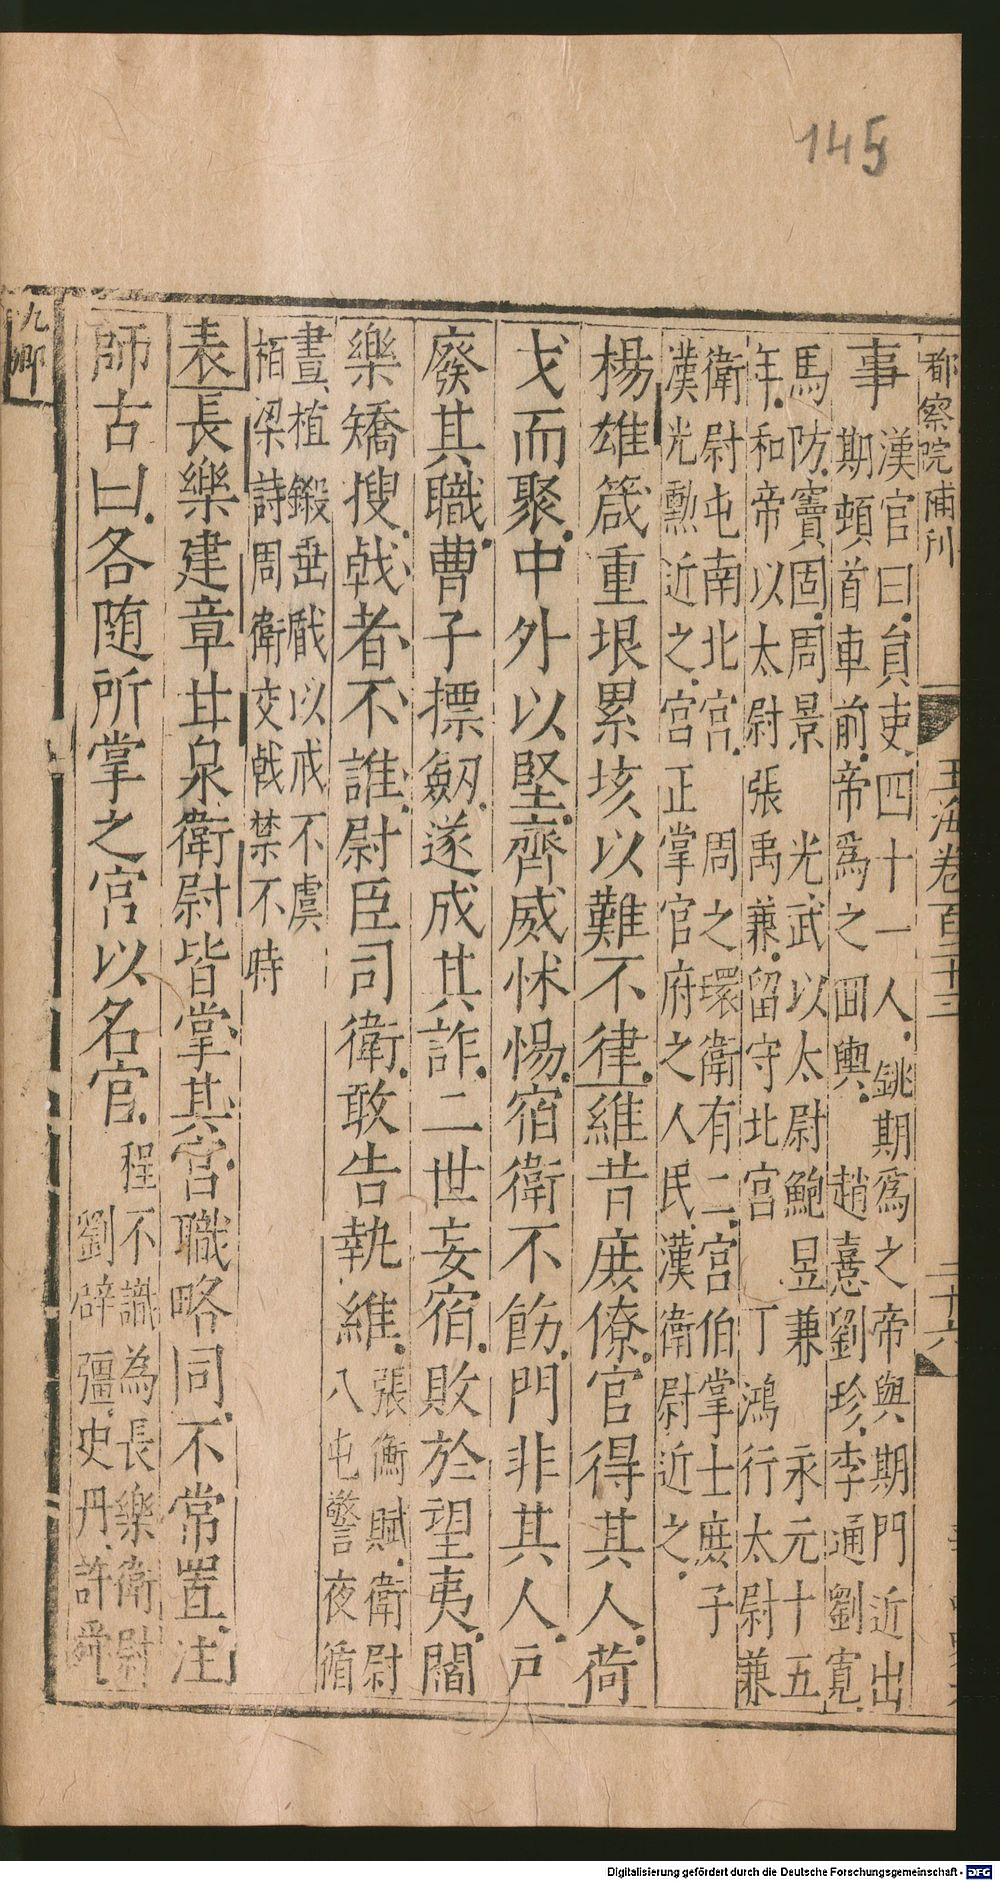 145
都察院補刊
玉海卷百二十三
二十六
事
漢官曰員吏四十一人銚期爲之帝與期門近出
期頓首車前帝爲之回輿 趙憙劉珍李通劉寬
馬防竇固周景 光武以太尉鮑昱兼 永元十五
年和帝以太尉張禹兼留守北宫 丁鴻行太尉兼
衛尉屯南北宫 周之環衛有二宫伯掌士庻子
漢光勲近之宫正掌官府之人民漢衛尉近之
楊雄箴重垠累垓以難不律維昔庻僚官得其人荷
戈而聚中外以堅齊威怵惕宿衛不飭門非其人戸
廢其職曹子摽劒遂成其詐二世妄宿敗於望夷閻
樂矯搜㦸者不誰尉臣司衛敢告執維
張衡賦衛尉
八屯警夜循
晝植鎩垂瞂以戒不虞
栢梁詩周衛交㦸禁不時
表長樂建章甘泉衛尉皆掌其宫職略同不常置注
師古曰各随所掌之宫以名官
程不識為長樂衛尉
劉辟彊史丹許舜
九卿
Digitalisierung gefördert durch die Deutsche Forschungsgemeinschaft - DFG